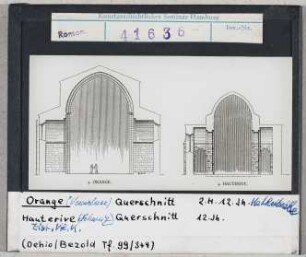 Kunstgeschichtliches Seminar Hamburg
Roman. 41636 Inv.-Nr.
2. ORANGE. 4. HAUTERIVE.
Orange (Vaucluse) Querschnitt 2.H. 12.Jh. Kathedrale
Hauterive (Schweiz) Querschnitt 12.Jh.
(Dehio/Bezold Tf. 99/344)